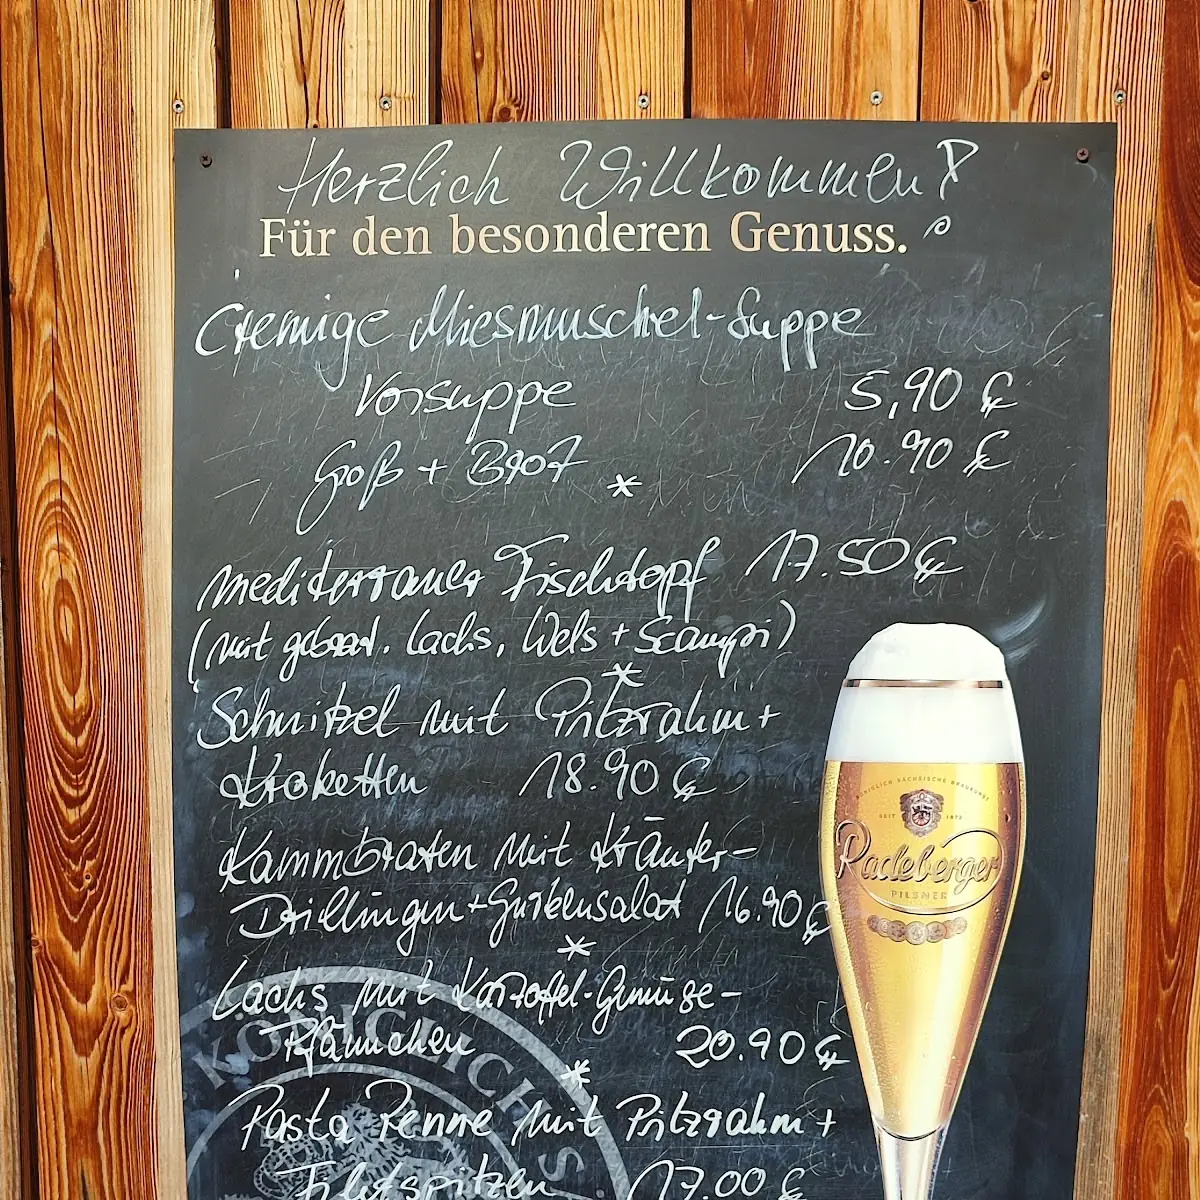 Herzlich Willkommen!
Für den besonderen Genuss.
Cremige Miesmuschel-Suppe
Vorsuppe 5,90 €
Groß + Brot 10.90 €
*
mediterraner Fischtopf 17.50 €
(mit gebrat. Lachs, Wels + Scampi)
*
Schnitzel mit Pilzrahm +
Kroketten 18.90 €
Kammbraten mit Kräuter-
Drillingen + Gurkensalat 16.90 €
*
Lachs mit Kartoffel-Gemüse-
Pfännchen 20.90 €
*
Pasta Penne mit Pilzrahm +
Filetspitzen 17.00 €
KÖNIGLICH S
KÖNIGLICH SÄCHSISCHE BRAUKUNST
SEIT 1872
Radeberger
PILSNER